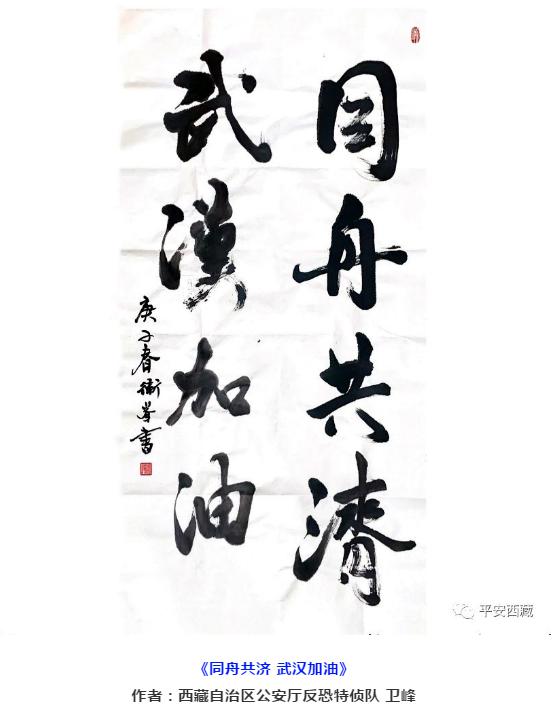 同舟共濟
武漢加油
庚子春衛峯書
平安西藏
《同舟共济 武汉加油》
作者：西藏自治区公安厅反恐特侦队 卫峰